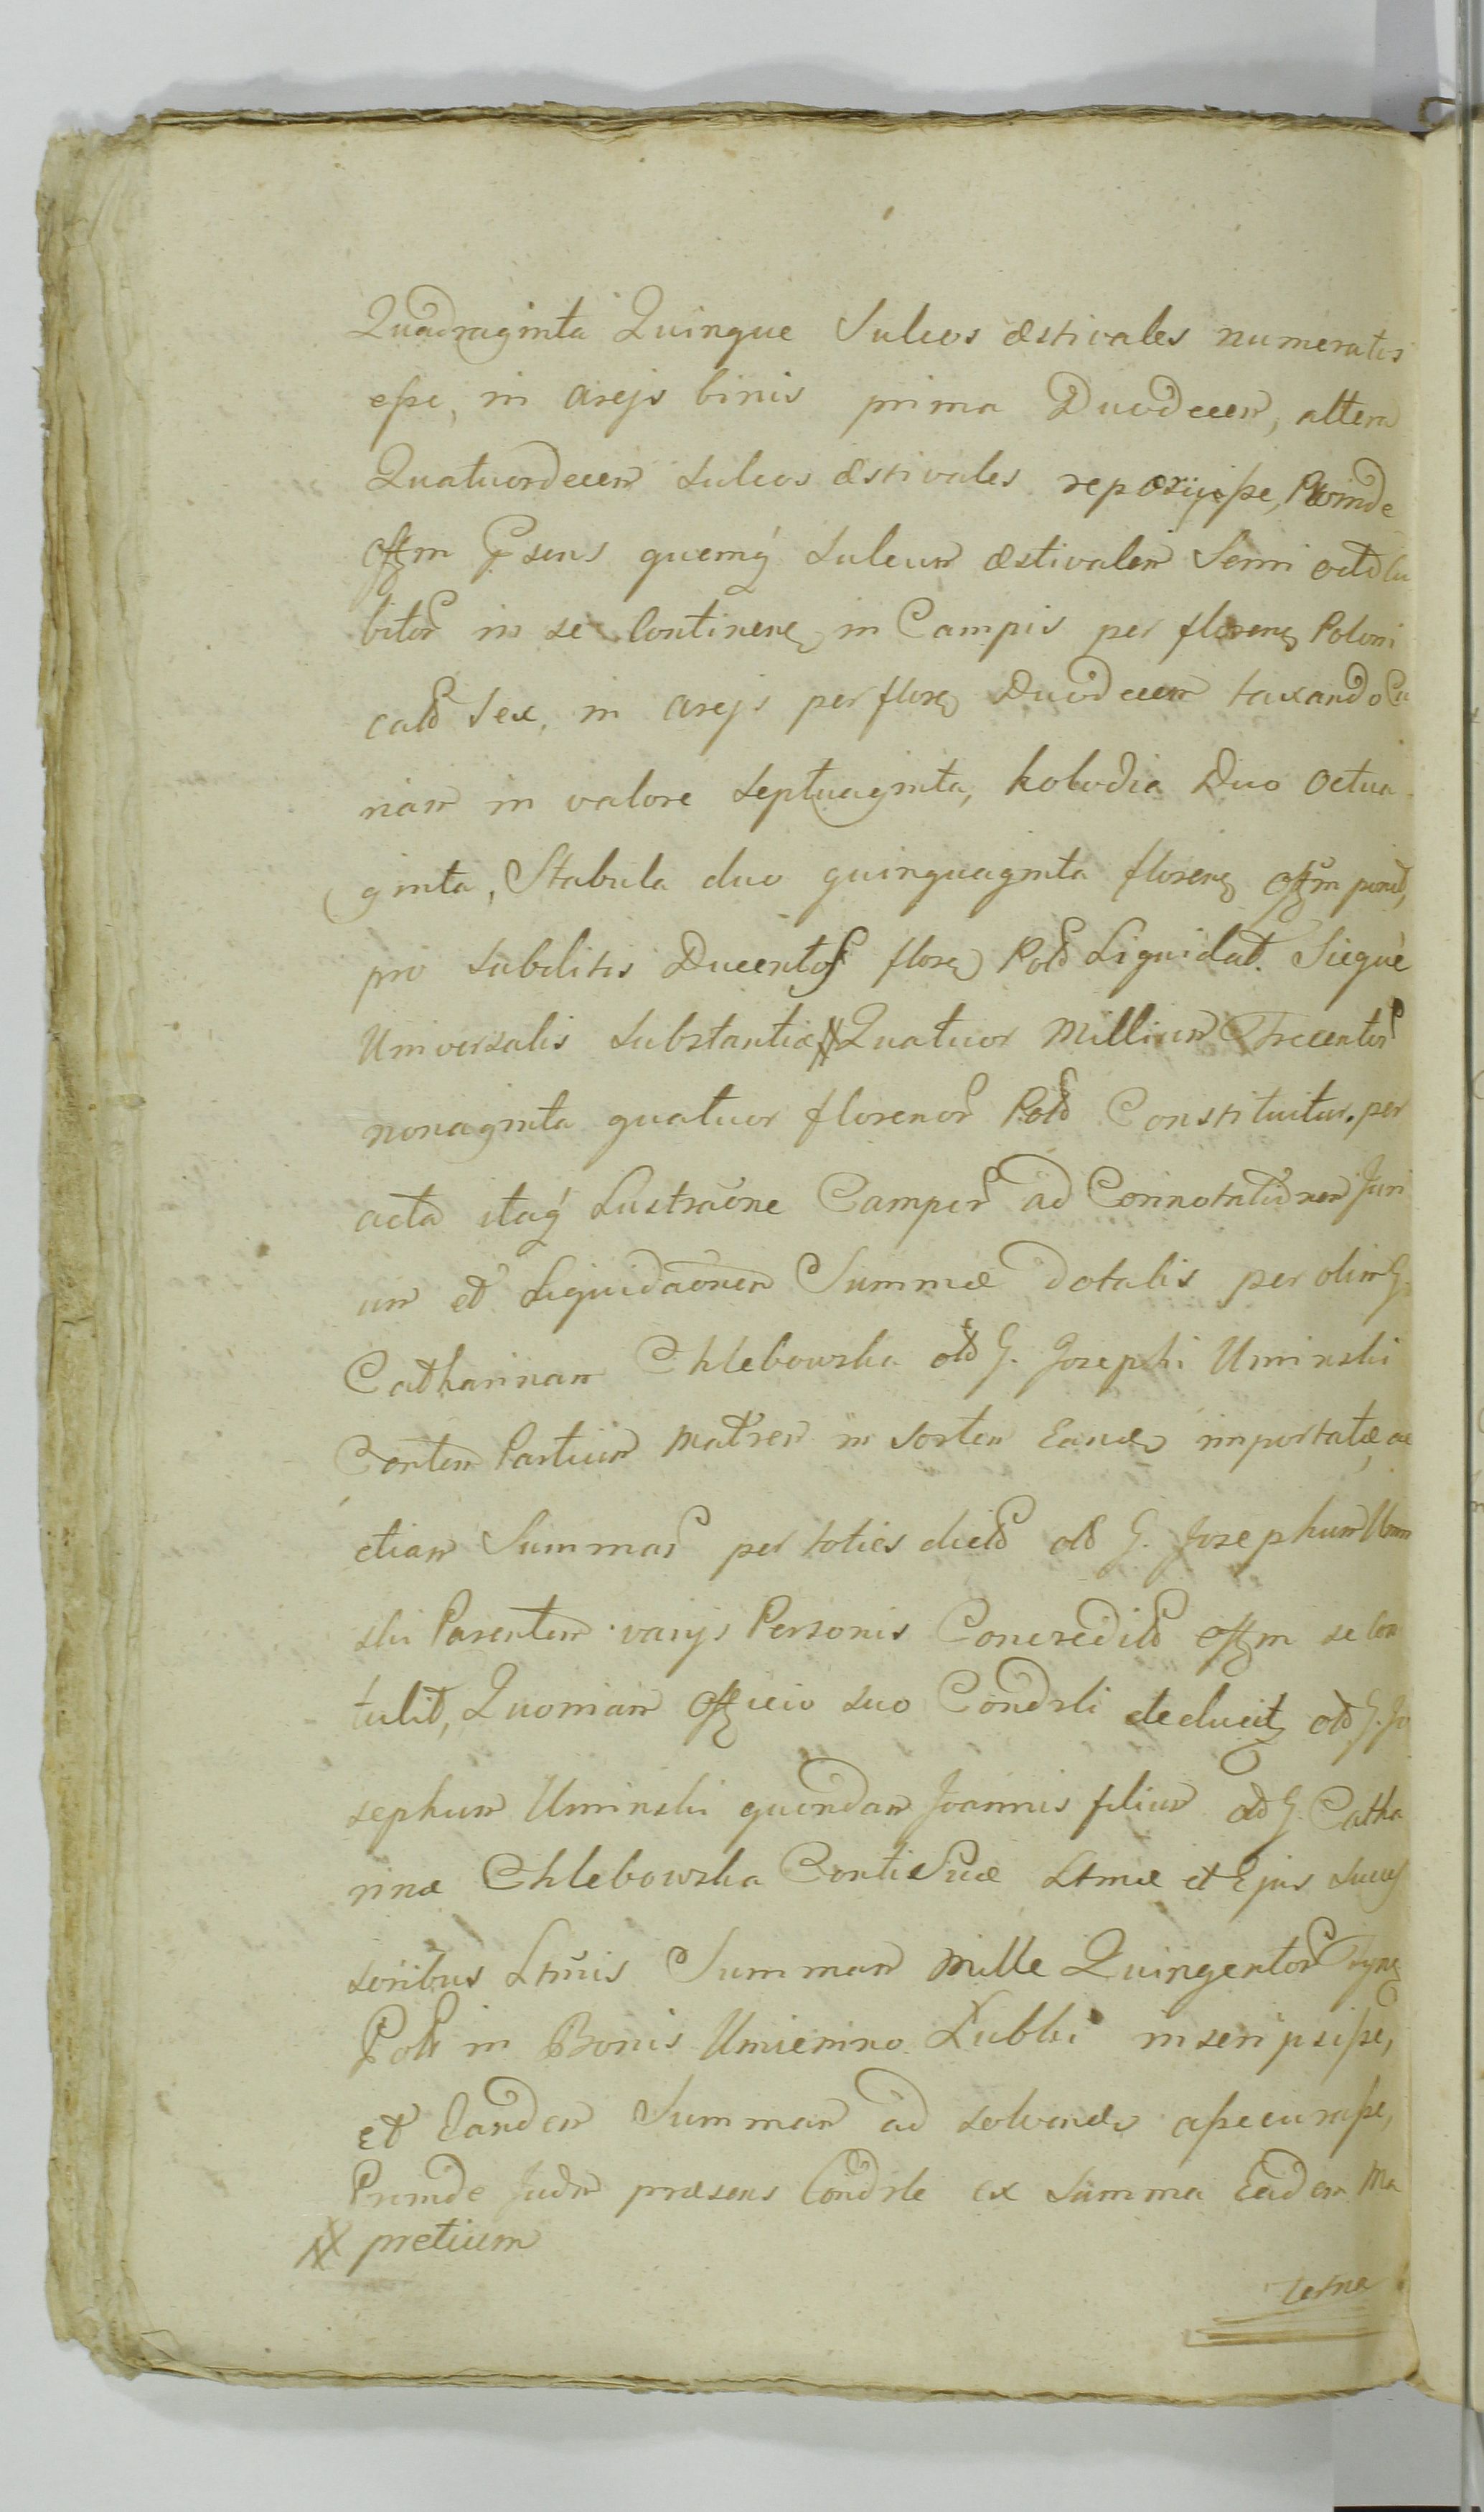 Quadraginta Quinque Sulcos æstivales numeratos
esse, in arejs binis prima Duodecem, altera
Quatuordecem Sulcos æstivales reperijsse, Proinde
offm Psens quemq́ Sulcum æstivalem Semi octo Cu
bitor in se Continenꝫ in Campis per florenꝫ Poloni
cales Sex, in arejs per florꝫ Duodecem taxando Cu
riam in valore Septuaginta, kolodia Duo Octua
ginta, Stabula duo quinquaginta florenꝫ offm ponit,
pro Subditis Ducentos florꝫ Pold Liquidat. Sicque
Universalis Substantiæ # Quatuor Millium Trecentor
nonaginta quatuor florenor Pold Constituitur. per
acta itaq́ Lustraōne Campor ad Connotationem Juri
um et Liquidaōnem Summæ dotalis per olim G.
Catharinam Chlebowska old G. Josephi Uminski
Contem Partium Matrem in Sortem Eandꝫ importatæ, ac
etiam Summar per toties dictd old G. Josephum Umin
ski Parentem varijs Personis Concreditd offm se Con
tulit, Quoniam Officio suo Condsli deducitꝫ old G. Jo
sephum Uminski quondam Joannis filium old G. Catha
rinæ Chlebowska Conti Suæ Ltmæ et Ejus Succes
soribus Ltmis Summam Mille Quingentor Tynꝫ
Pold in Bonis Umienino Łubki inscripsisse,
et Eandem Summam ad solvendꝫ assecurasse,
Proinde Judm præsens Condsle ex Summa Eadem Ma
# pretium
terna